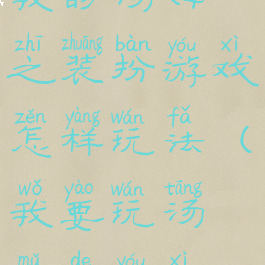 我的汤(4
zhī zhuāng bàn yóu xì
之装扮游戏
zěn yàng wán fǎ
怎样玩法(
wǒ yào wán tāng
我要玩汤
mǔ de yóu xì